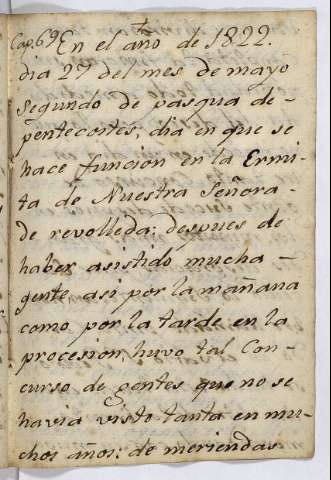 Cap. 69 En el año de 1822.
dia 27 del mes de mayo
segundo de pasqua de-
pentecortes, dia en que se
hace función en la Ermi-
ta de Nuestra Señora-
de revolleda: despues de
haber asistido mucha-
gente asi por la mañana
como por la tarde en la
procesion, huvo tal Con-
curso de gentes que no se
havia visto tanta en mu-
chos años: de meriendas